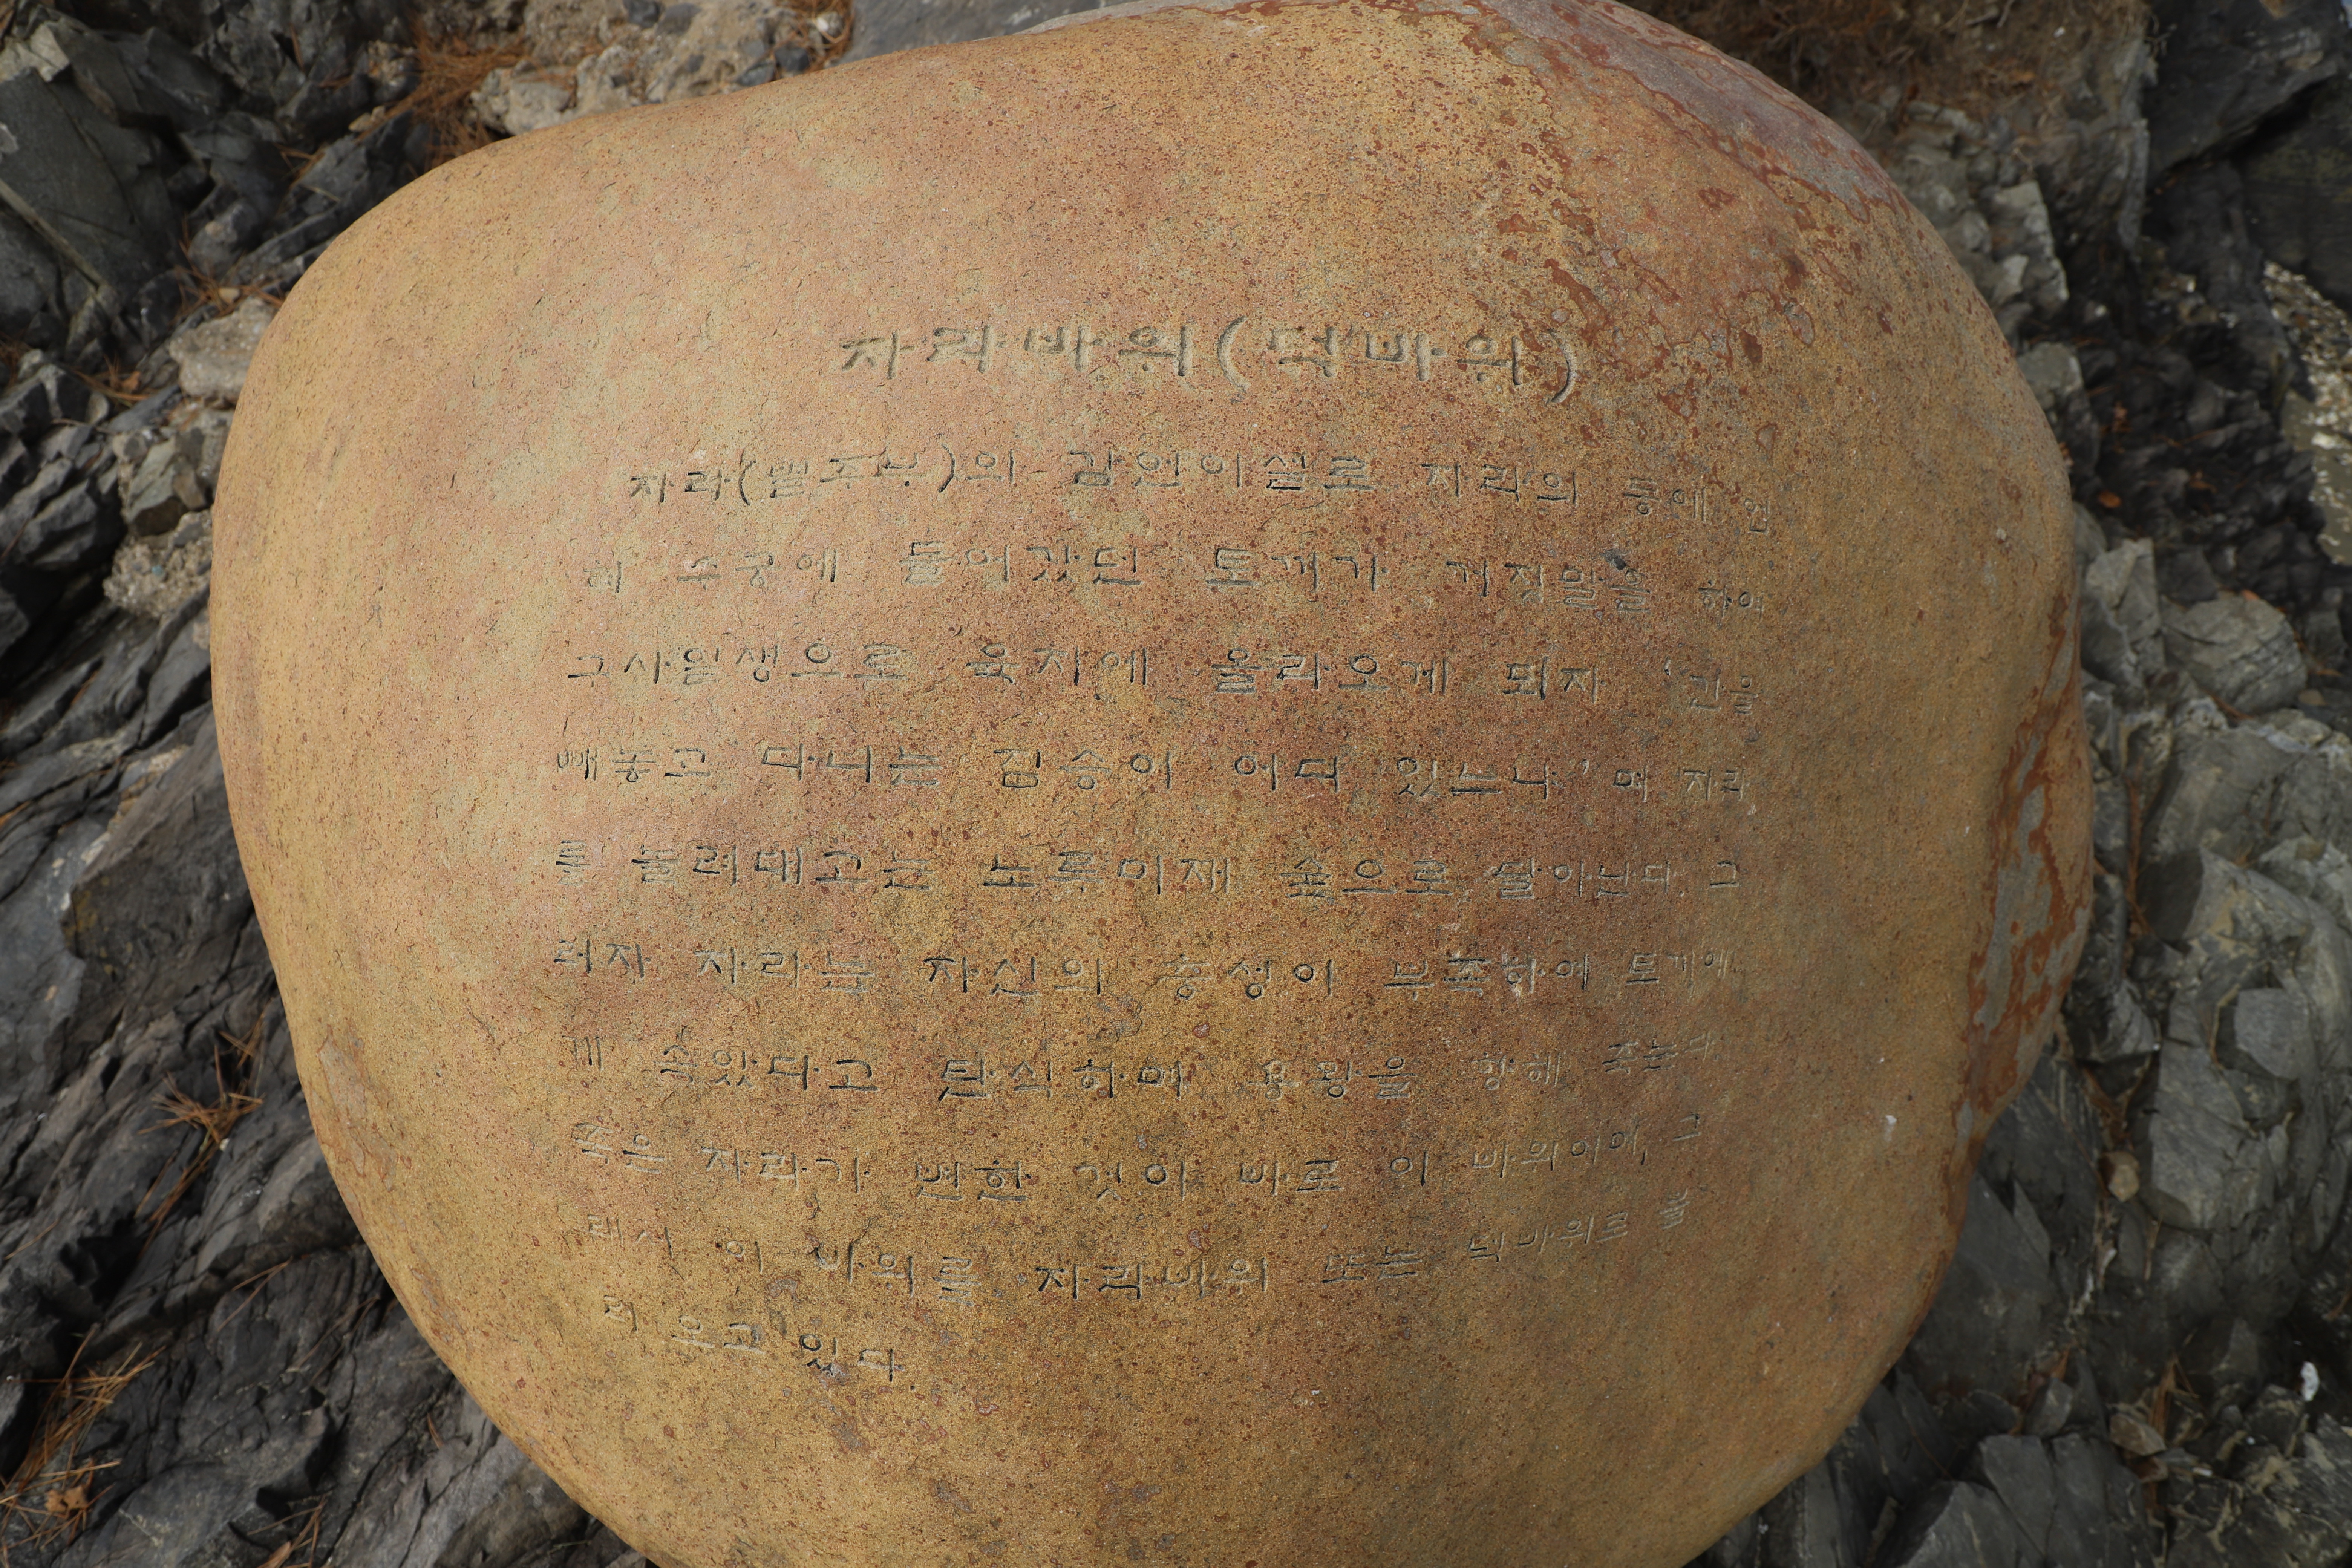 자라바위(덕바위)
자라(별주부)의 감언이설로 자라의 등에 업
혀 수궁에 들어갔던 토끼가 거짓말을 하여
구사일생으로 육지에 올라오게 되자 '간을
빼놓고 다니는 짐승이 어디 있느냐'며 자라
를 놀려대고는 노루미재 숲으로 달아난다. 그
러자 자라는 자신의 충성이 부족하여 토끼에
게 속았다고 탄식하며 용왕을 향해 죽는데
죽은 자라가 변한 것이 바로 이 바위이며, 그
래서 이 바위를 자라바위 또는 덕바위로 불
러 오고 있다